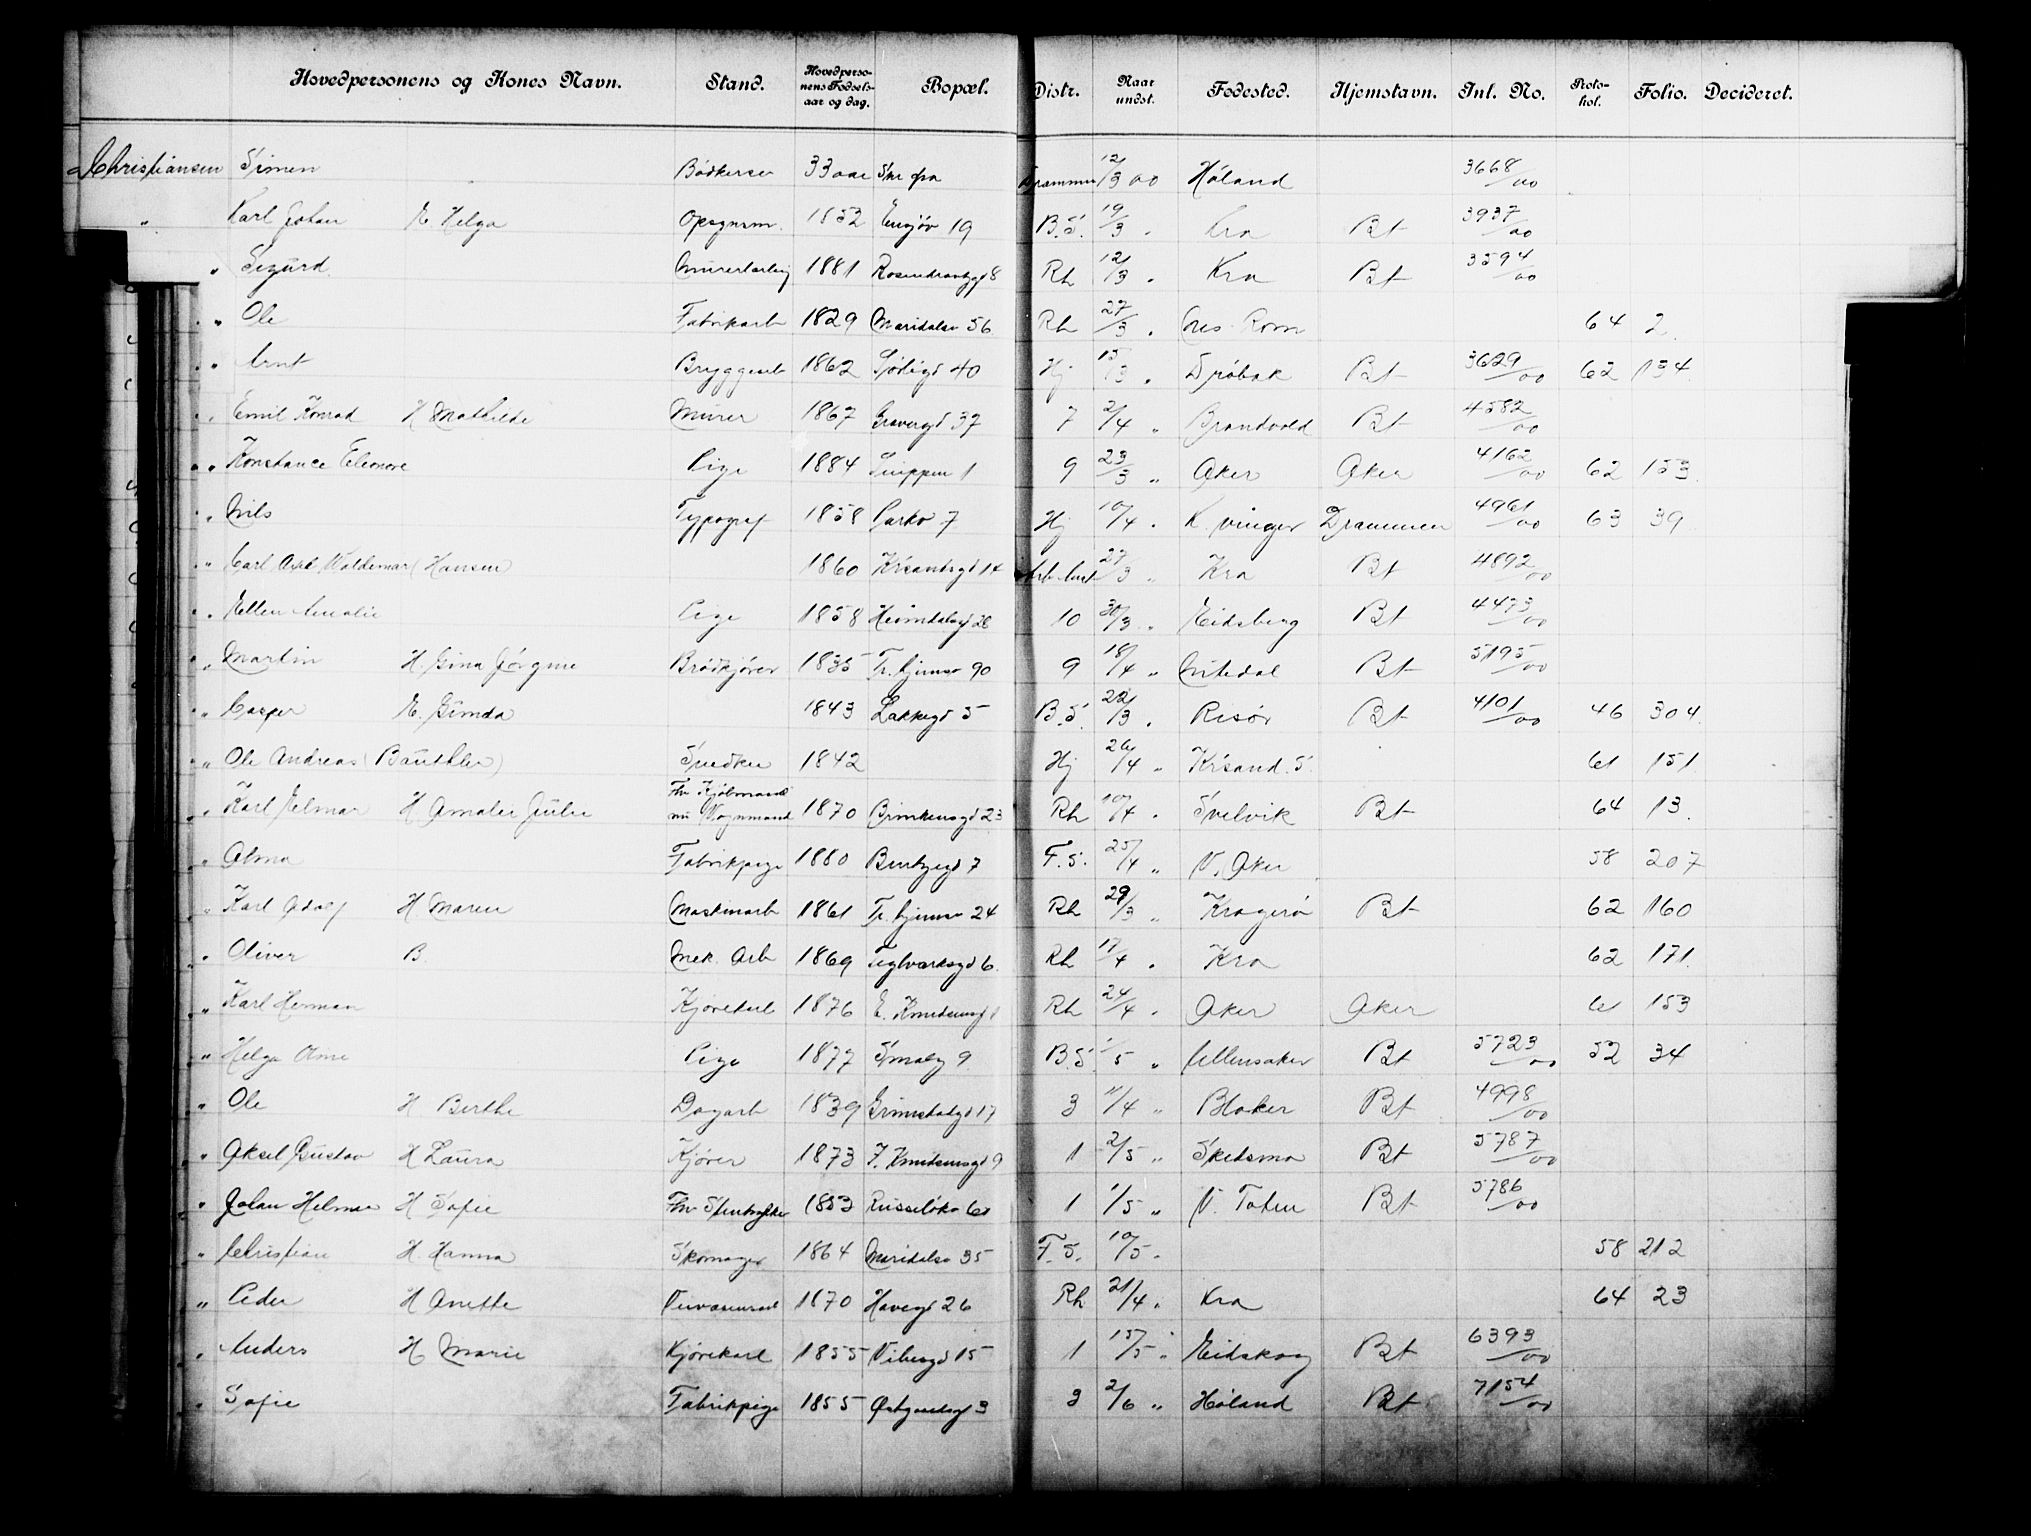 Hovedpersonens og Kones Navn. Stand. Hovedperso-nens Fødsels-aar og dag. Bopæl. Distr. Naar undst. Fødested. Hjemstavn. Inl. No. Proto-kol. Folio. Decideret.
Christiansen Simen Bødkersv 33 aar Skr fra Drammen 12/3 00 Høland 3668/00
" Karl Johan E Helga Opsynsm. 1852 Ensjøv 19 B.S. 19/3 " Kra Bt 3937/00
" Sigurd Murerlærling 1881 Rosenkrantzgd 8 Rh 12/3 " Kra Bt 3594/00
" Ole Fabrikarb 1829 Maridalsv 56 Rh 27/3 " Rom 64 2
" Arnt Bryggearb 1862 Sjøligd 40 Hj 15/3 " Drøbak Bt 3629/00 62 134
" Emil Konrad H Mathilde Murer 1867 Gravergd 37 7 2/4 " Brandvold Bt 4582/00
" Konstance Eleonore Pige 1884 Snippen 1 9 23/3 " Aker Aker 4162/00 62 153
" Nils Typograf 1858 Parkv 7 Hj 10/4 " K.vinger Drammen 4961/00 63 39
" Carl Axel Valdemar (Hansen 1860 Krsandsgd 14 Arb.Anst 27/3 " Kra Bt 4892/00
" Ellen Amalie Pige 1858 Heimdalsgd 28 10 30/3 " Eidsberg Bt 4473/00
" Martin H. Gina Jørgine Brødkjører 1835 Tr.hjemsv 90 9 18/4 " Nitedal Bt 5195/00
" Casper E. Gunda 1843 Lakkegd 5 B.S. 22/3 " Risør Bt 4101/00 46 304
" Ole Andreas (Bauthler) Snedker 1842 Hj 26/4 " Krsand. S. 61 151
" Karl Helmar H Amalie Julie Fhv Kjøbmand nu Vognmand 1870 Brinkensgd 23 Rh 10/4 " Svelvik Bt 64 13
" Alma Fabrikpige 1880 Bentzegd 7 F.S. 25/4 " V. Aker 58 207
" Karl Adolf H Maren Maskinarb 1861 Tr.hjemsv 24 Rh 29/3 " Kragerø Bt 62 160
" Oliver B. Mek. Arb 1869 Teglværksgd 6 Rh 17/4 " Kra 62 171
" Karl Herman Kjørekarl 1876 E. Knudsensgd 1 Rh 24/4 " Aker Aker 61 153
" Helga Pige 1877 Smalg 9 B.S. 1/5 " Ullensaker Bt 5723/00 52 34
" Ole H Berthe Dagarb 1839 Grimstadgd 17 3 11/4 " Blaker Bt 4998/00
" Aksel Gustav H Laura Kjører 1873 F. Knudsensgd 9 1 2/5 " Skedsmo Bt 5787/00
" Johan Helmer H Sofie Fhv Stentrykker 1853 Russeløkv 60 1 1/5 " V. Toten Bt 5786/00
" Christian H. Hanna Skomager 1864 Maridalsv 35 F.S. 10/5 " 58 212
" Peder H Anette 1870 Havegd 26 Rh 21/4 " Kra 64 23
" Anders H Marie Kjørekarl 1855 Vibesgd 15 1 15/5 " Eidskog Bt 6393/00
" Sofie Fabrikpige 1855 Østgaardsgd 3 3 2/6 " Høland Bt 7154/00